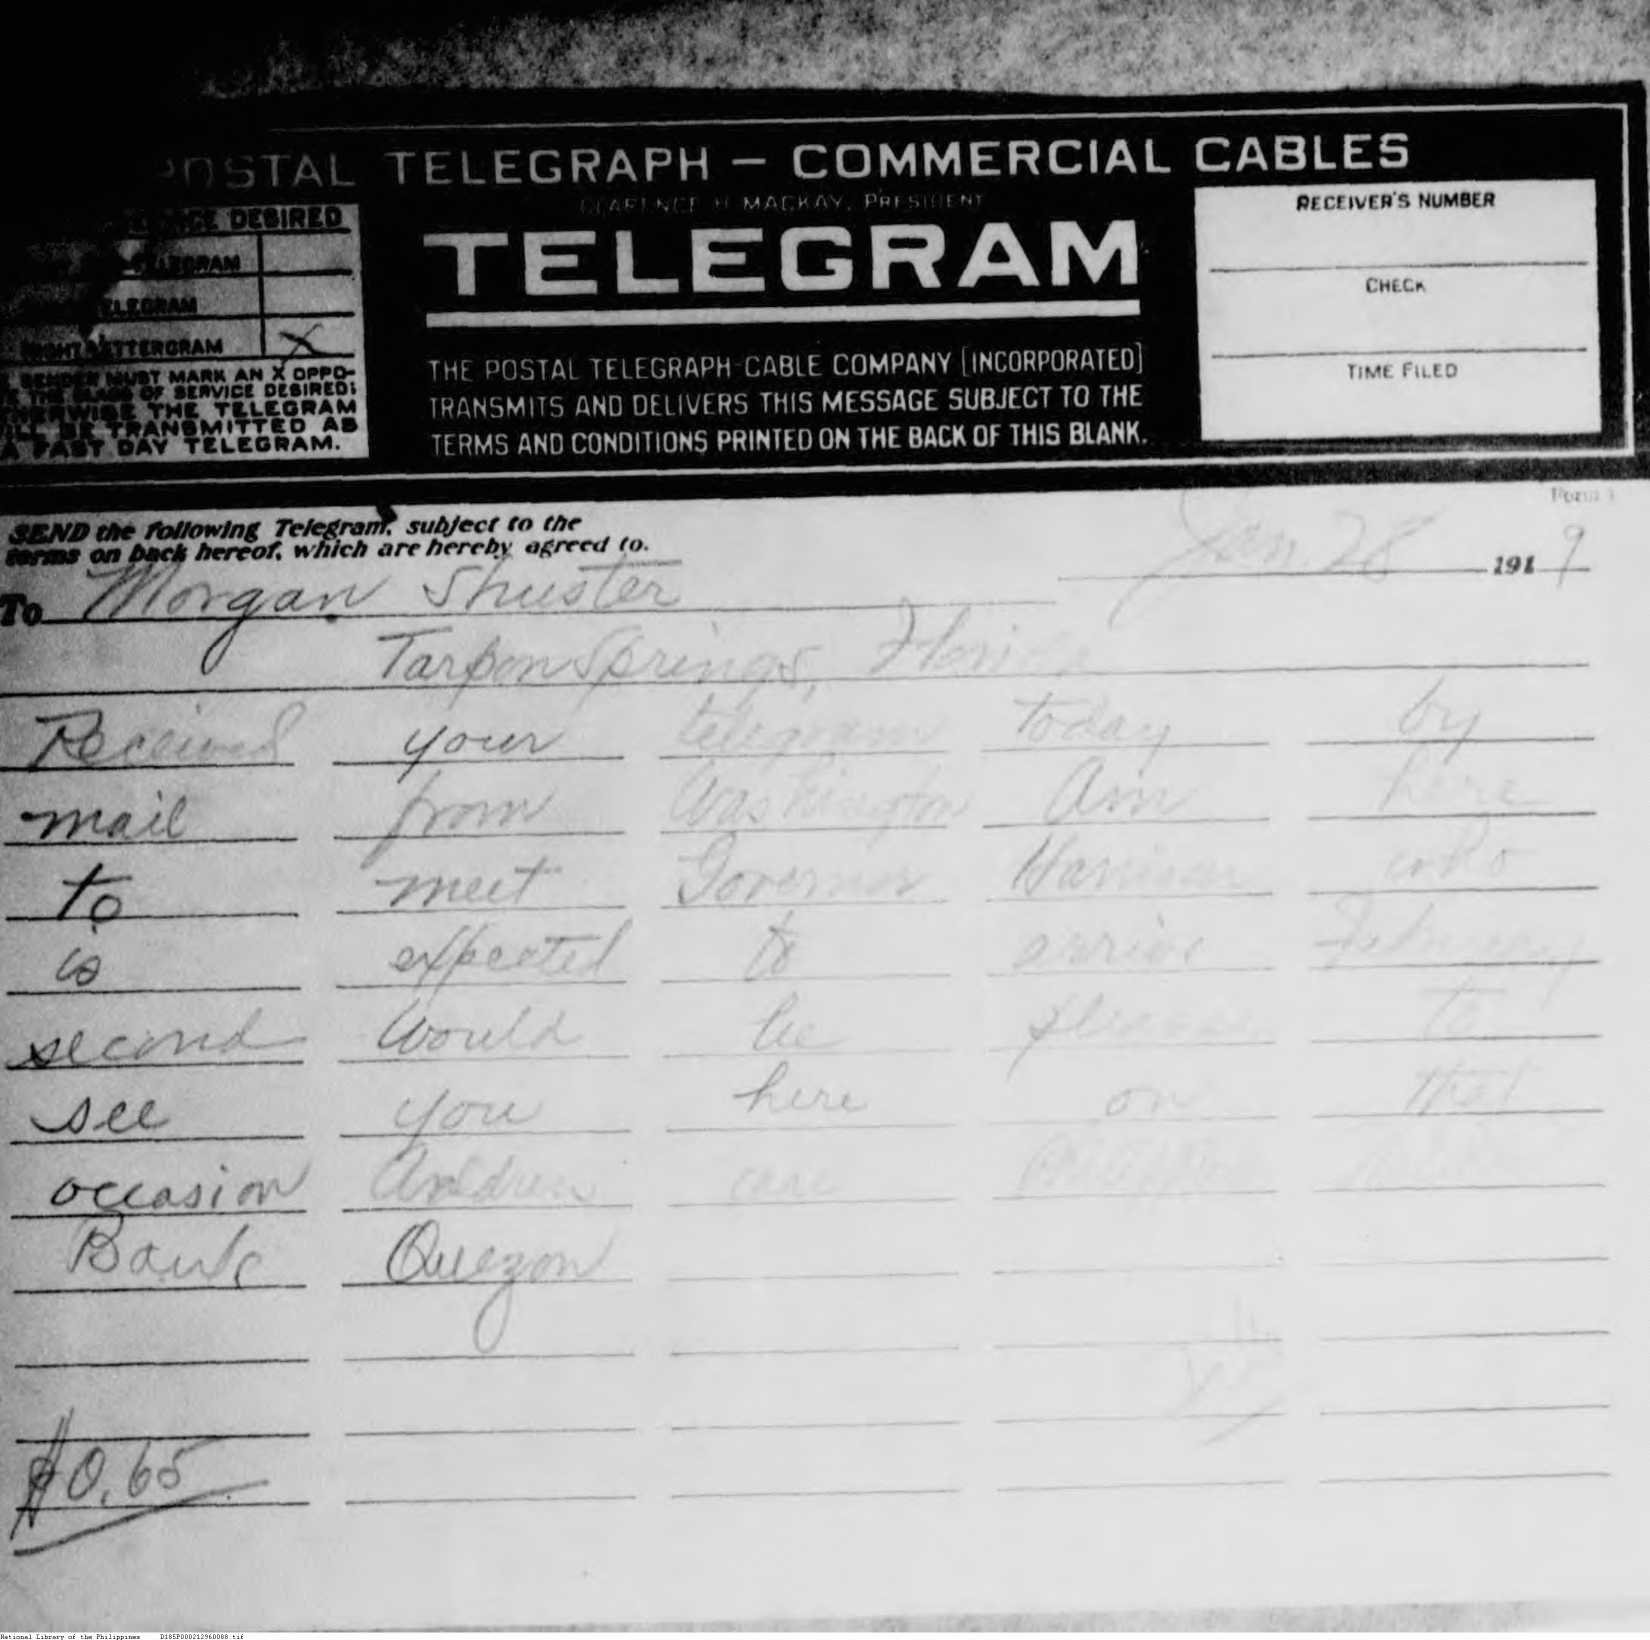 POSTAL TELEGRAPH — COMMERCIAL CABLES
CLARENCE H. MACKAY, PRESIDENT
TELEGRAM
THE POSTAL TELEGRAPH-CABLE COMPANY [INCORPORATED]
TRANSMITS AND DELIVERS THIS MESSAGE SUBJECT TO THE
TERMS AND CONDITIONS PRINTED ON THE BACK OF THIS BLANK.
DESIRED
TELEGRAM
TELEGRAM
NIGHT LETTERGRAM X
SENDER MUST MARK AN X OPPO-
THE CLASS OF SERVICE DESIRED;
OTHERWISE THE TELEGRAM
WILL BE TRANSMITTED AS
A FAST DAY TELEGRAM.
RECEIVER'S NUMBER
CHECK
TIME FILED
Form 1
SEND the following Telegram, subject to the
terms on back hereof, which are hereby agreed to.
Jan. 28 1919
To Morgan Shuster
Tarpon Springs, Florida
Received your telegram today by
mail from Washington Am here
to meet Governor Harrison who
is expected to arrive February
second Would be please to
see you here on that
occasion Address care Philippine
Bank Quezon
$0.65
National Library of the Philippines D185P000212960088.tif